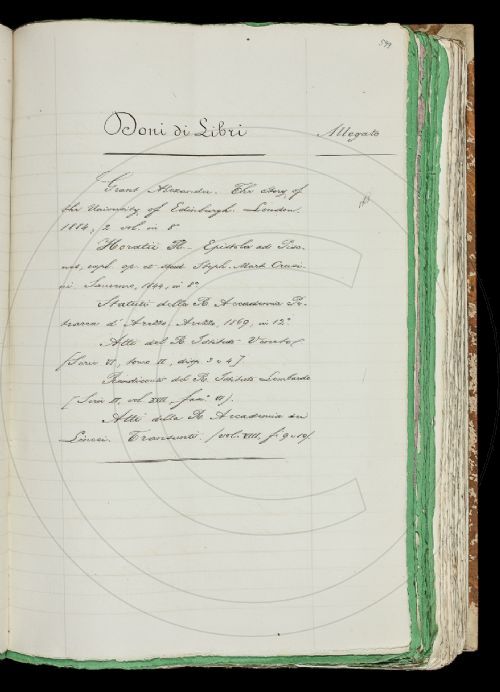 Doni di Libri
Allegato
Grant Alexander. The story of
the University of Edinburgh. London.
1884, 2 vol. in 8º
Horatii Fl. - Epistola ad Piso-
nes, expl. op et stud. Steph. Mark
1844, in 8º
Statuti della R. Accademia Pe-
trarca d'Arezzo. Arezzo, 1869, in 12º
Atti del R. Istituto Veneto
[Serie VI, tomo II, disp. 3 e 4]
Rendiconti del R. Istituto Lombardo
[Serie II, vol. XVII, fasc.
Atti della R. Accademia dei
Lincei. Transunti. [vol. VIII, f. 9 e 10].